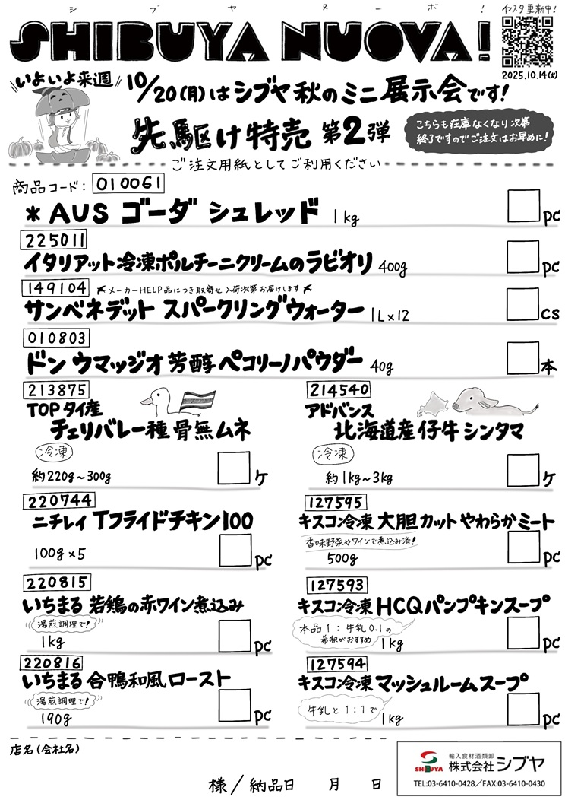 シブヤヌーボ!
インスタ更新中!
SHIBUYA NUOVA!
2025.10.14(火)
いよいよ来週
10/20(月)はシブヤ秋のミニ展示会です!
先駆け特売 第2弾
こちらも在庫なくなり次第
終了ですのでご注文はお早めに!
ご注文用紙としてご利用ください
商品コード: 010061
* AUS ゴーダ シュレッド 1kg pc
225011
イタリアット冷凍ポルチーニクリームのラビオリ 400g pc
149104 メーカーHELP品につき取寄せ 入荷次第お届けします
サンベネデット スパークリングウォーター 1L×12 CS
010803
ドン ウマッジオ 芳醇ペコリーノパウダー 40g 本
213875
TOPタイ産
チェリバレー種 骨無ムネ
冷凍
約220g~300g ケ
214540
アドバンス
北海道産仔牛 シンタマ
冷凍
約1kg~3kg ケ
220744
ニチレイ Tフライドチキン100
100g×5 pc
127595
キスコ冷凍 大胆カットやわらかミート
香味野菜やワインで煮込み済!
500g pc
220815
いちまる 若鶏の赤ワイン煮込み
湯煎調理で!
1kg pc
127593
キスコ冷凍 HCQパンプキンスープ
本品1:牛乳0.1の
希釈がおすすめ 1kg pc
220816
いちまる 合鴨和風ロースト
湯煎調理で!
190g pc
127594
キスコ冷凍 マッシュルームスープ
牛乳と1:1で 1kg pc
店名(会社名)
様/納品日 月 日
SHIBUYA
輸入食材酒類卸
株式会社 シブヤ
TEL:03-6410-0428/FAX:03-6410-0430